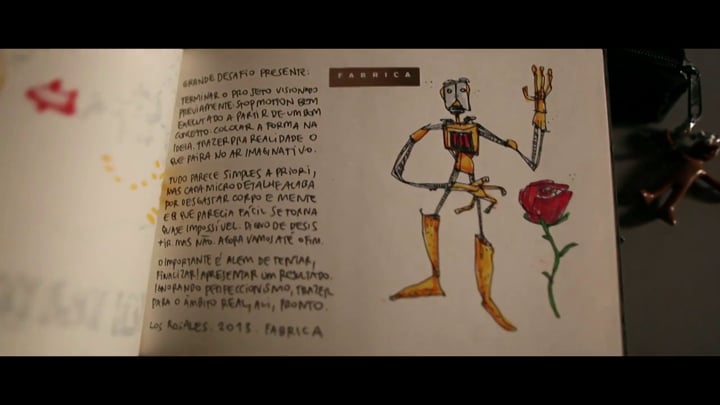 GRANDE DESAFIO PRESENTE:
TERMINAR O PROJETO VISIONADO
PREVIAMENTE: STOPMOTION BEM
EXECUTADO A PARTIR DE UM BOM
CONCEITO. COLOCAR A FORMA NA
IDEIA. TRAZER PRA REALIDADE O
QUE PAIRA NO AR IMAGINATIVO.
TUDO PARECE SIMPLES A PRIORI,
MAS CADA MICRO DETALHE ACABA
POR DESGASTAR CORPO E MENTE
E O QUE PARECIA FÁCIL SE TORNA
QUASE IMPOSSÍVEL. DIGNO DE DESIS
TIR. MAS NÃO. AGORA VAMOS ATE O FIM.
O IMPORTANTE É ALEM DE TENTAR,
FINALIZAR/APRESENTAR UM RESULTADO.
IGNORANDO PERFECCIONISMO, TRAZER
PARA O ÂMBITO REAL, ALI, PRONTO.
2013. FABRICA
FABRICA